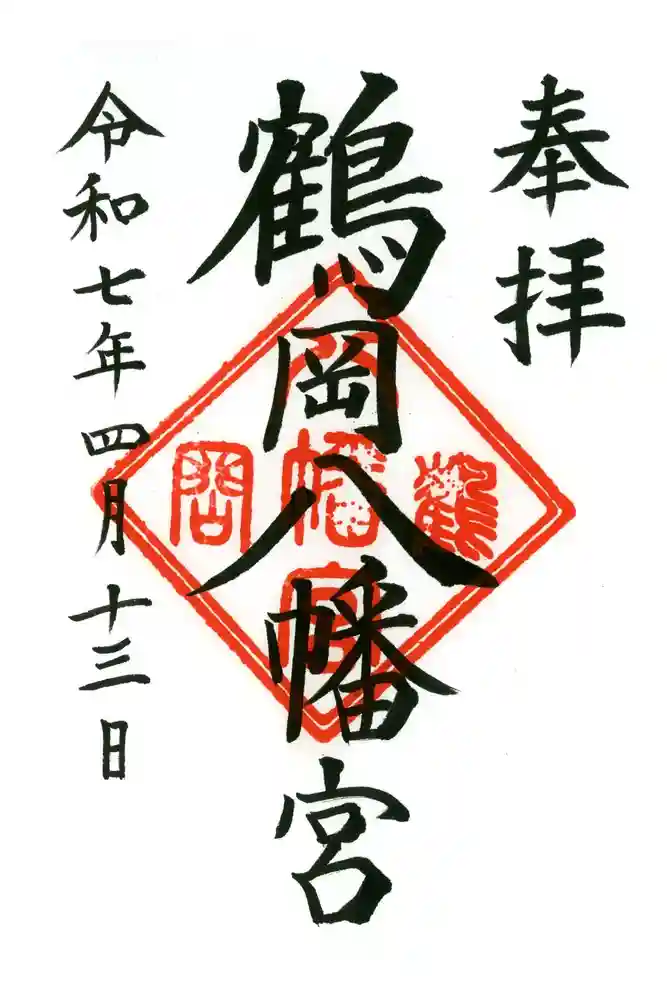 奉拝
鶴岡八幡宮
令和七年四月十三日
鶴
八幡宮
岡